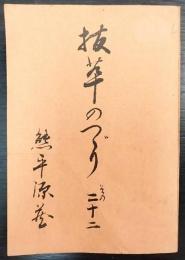 抜萃のつゞり
その二十二
熊平源蔵